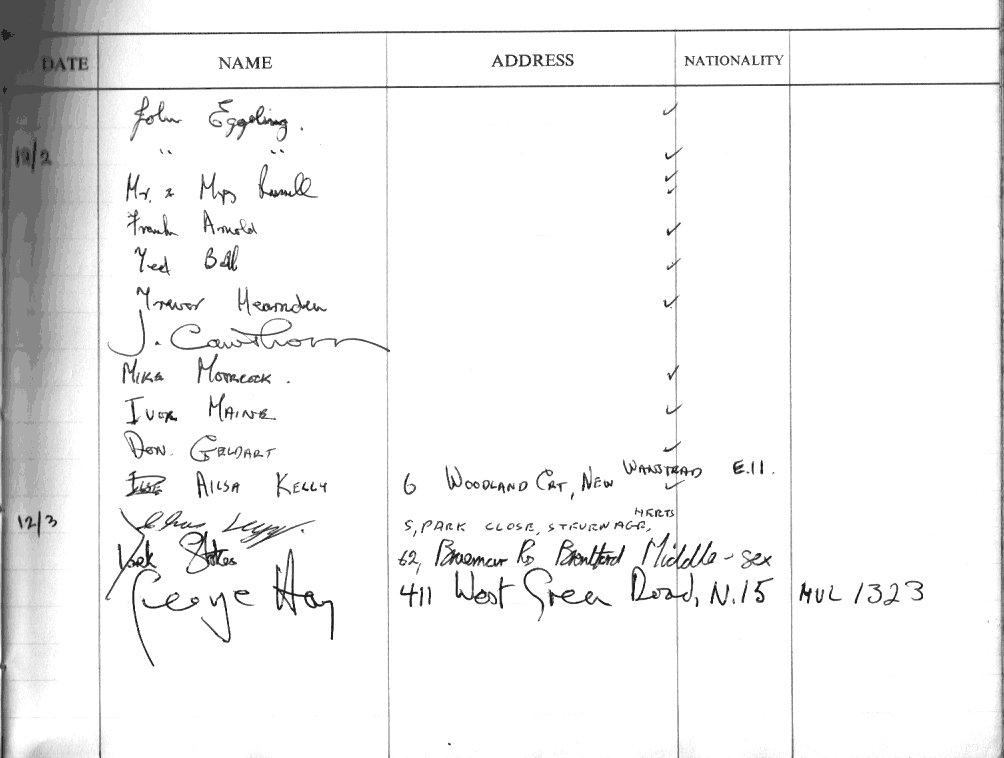 DATE NAME ADDRESS NATIONALITY
John Eggeling.
12/2 " "
Mr. & Mrs Russell
Frank Arnold
Ted Ball
Trevor Hearnden
J. Cawthorn
MIKE MOORCOCK.
IVOR MAINE
DON. GELDART
AILSA KELLY 6 WOODLAND CRT, NEW WANSTEAD E.11.
12/3 5, PARK CLOSE, STEVENAGE, HERTS
Stokes 62, Braemar Rd Brentford Middle-sex
George Hay 411 West Green Road, N.15 MUL 1323